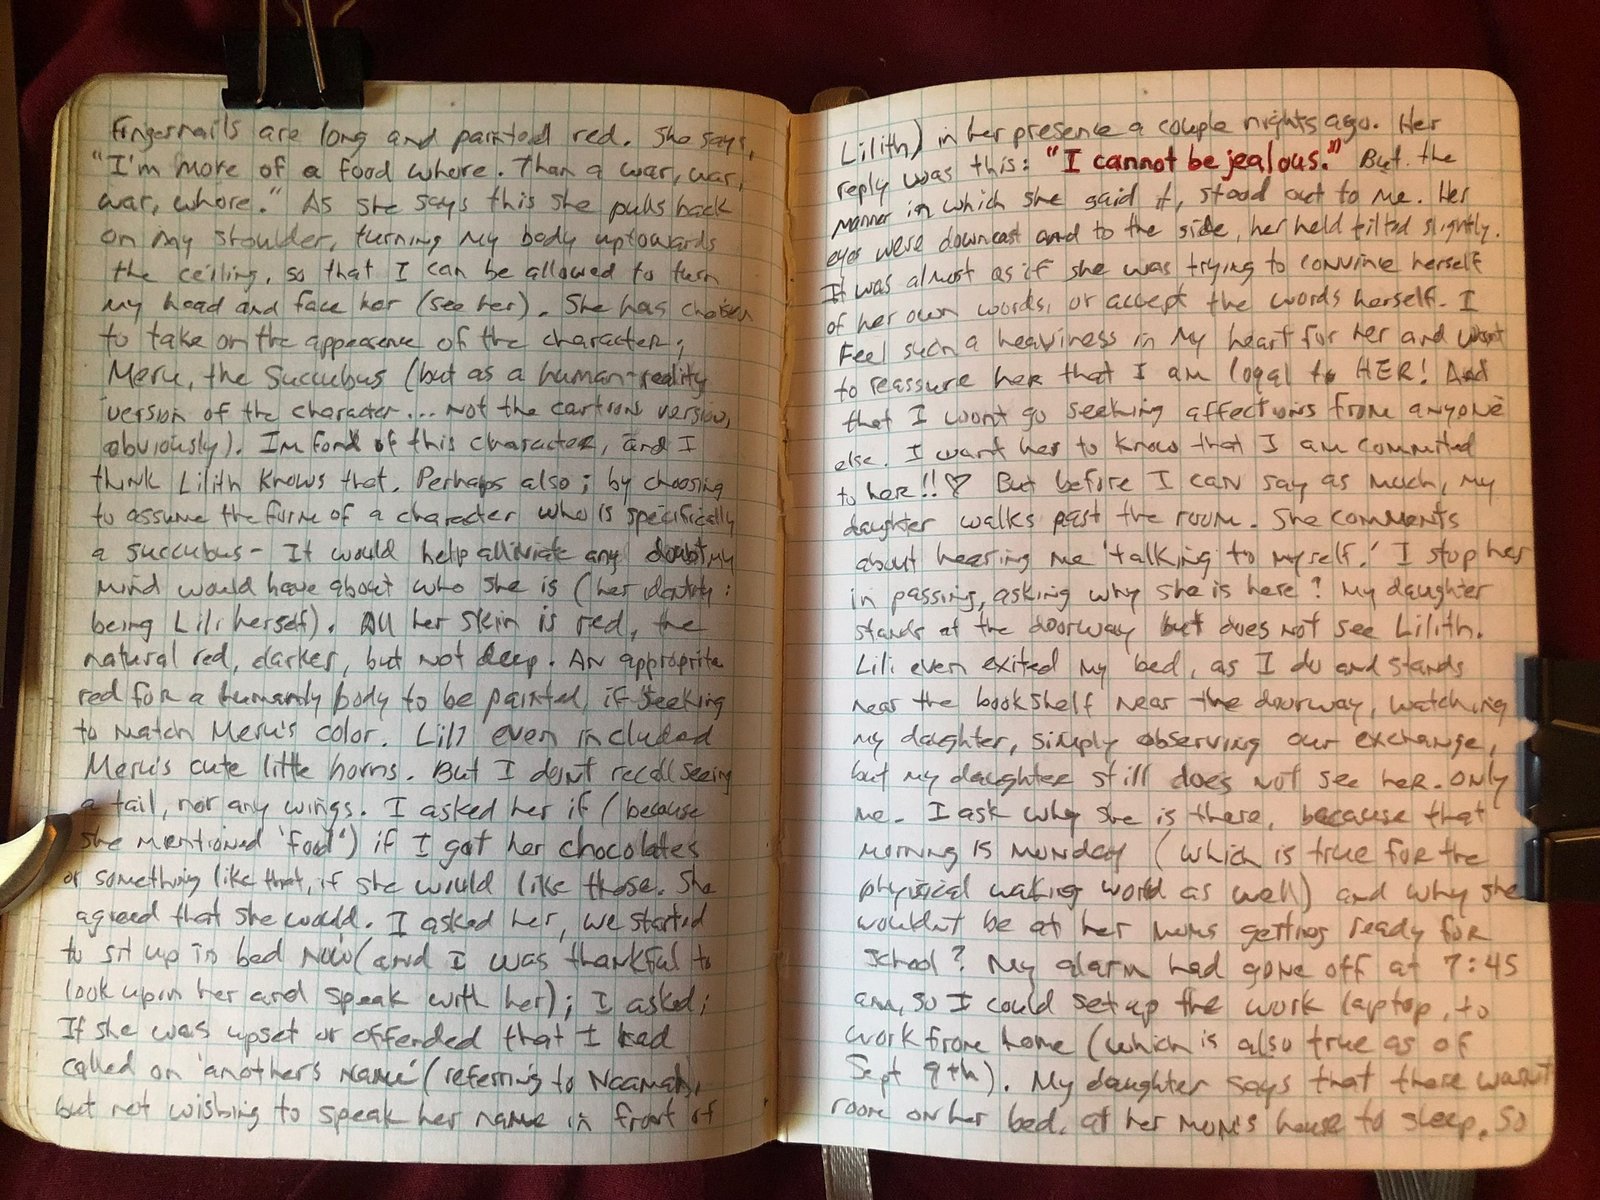 Fingernails are long and painted red. She says,
"I'm more of a food whore. Than a war, war,
war, whore." As she says this she pulls back
on my shoulder, turning my body uptowards
the ceiling, so that I can be allowed to turn
my head and face her (see her). She has chosen
to take on the appearence of the character;
Meru, the Succubus (but as a human-reality
version of the character... not the cartoon version,
obviously). Im fond of this character, and I
think Lilith knows that. Perhaps also; by choosing
to assume the form of a character who is specifically
a succubus- It would help alliviate any doubt my
mind would have about who she is (her identity:
being Lili herself). All her skin is red, the
natural red, darker, but not deep. An approprite
red for a humanly body to be painted, if seeking
to match Meru's color. Lili even included
Meru's cute little horns. But I don't recall seeing
a tail, nor any wings. I asked her if (because
she mentioned 'food') if I got her chocolates
or something like that, if she would like those. She
agreed that she would. I asked her, we started
to sit up in bed now (and I was thankful to
look upon her and speak with her); I asked;
If she was upset or offended that I had
called on 'another's name' (referring to Naamah,
but not wishing to speak her name in front of
Lilith) in her presence a couple nights ago. Her
reply was this: "I cannot be jealous." But the
manner in which she said it, stood out to me. Her
eyes were downcast and to the side, her held tilted slightly.
It was almost as if she was trying to convince herself
of her own words, or accept the words herself. I
Feel such a heaviness in my heart for her and want
to reassure her that I am loyal to HER! And
that I wont go seeking affections from anyone
else. I want her to know that I am commited
to her!! ♡ But before I can say as much, my
daughter walks past the room. She comments
about hearing me 'talking to myself.' I stop her
in passing, asking why she is here? My daughter
stands at the doorway but does not see Lilith.
Lili even exited my bed, as I do and stands
near the bookshelf near the doorway, watching
my daughter, simply observing our exchange,
but my daughter still does not see her. Only
me. I ask why she is there, because that
morning is Munday (which is true for the
physical waking world as well) and why she
wouldnt be at her moms getting ready for
school? My alarm had gone off at 7:45
am, so I could set up the work laptop, to
work from home (which is also true as of
Sept 9th). My daughter says that there wasn't
room on her bed, at her mom's house to sleep. So